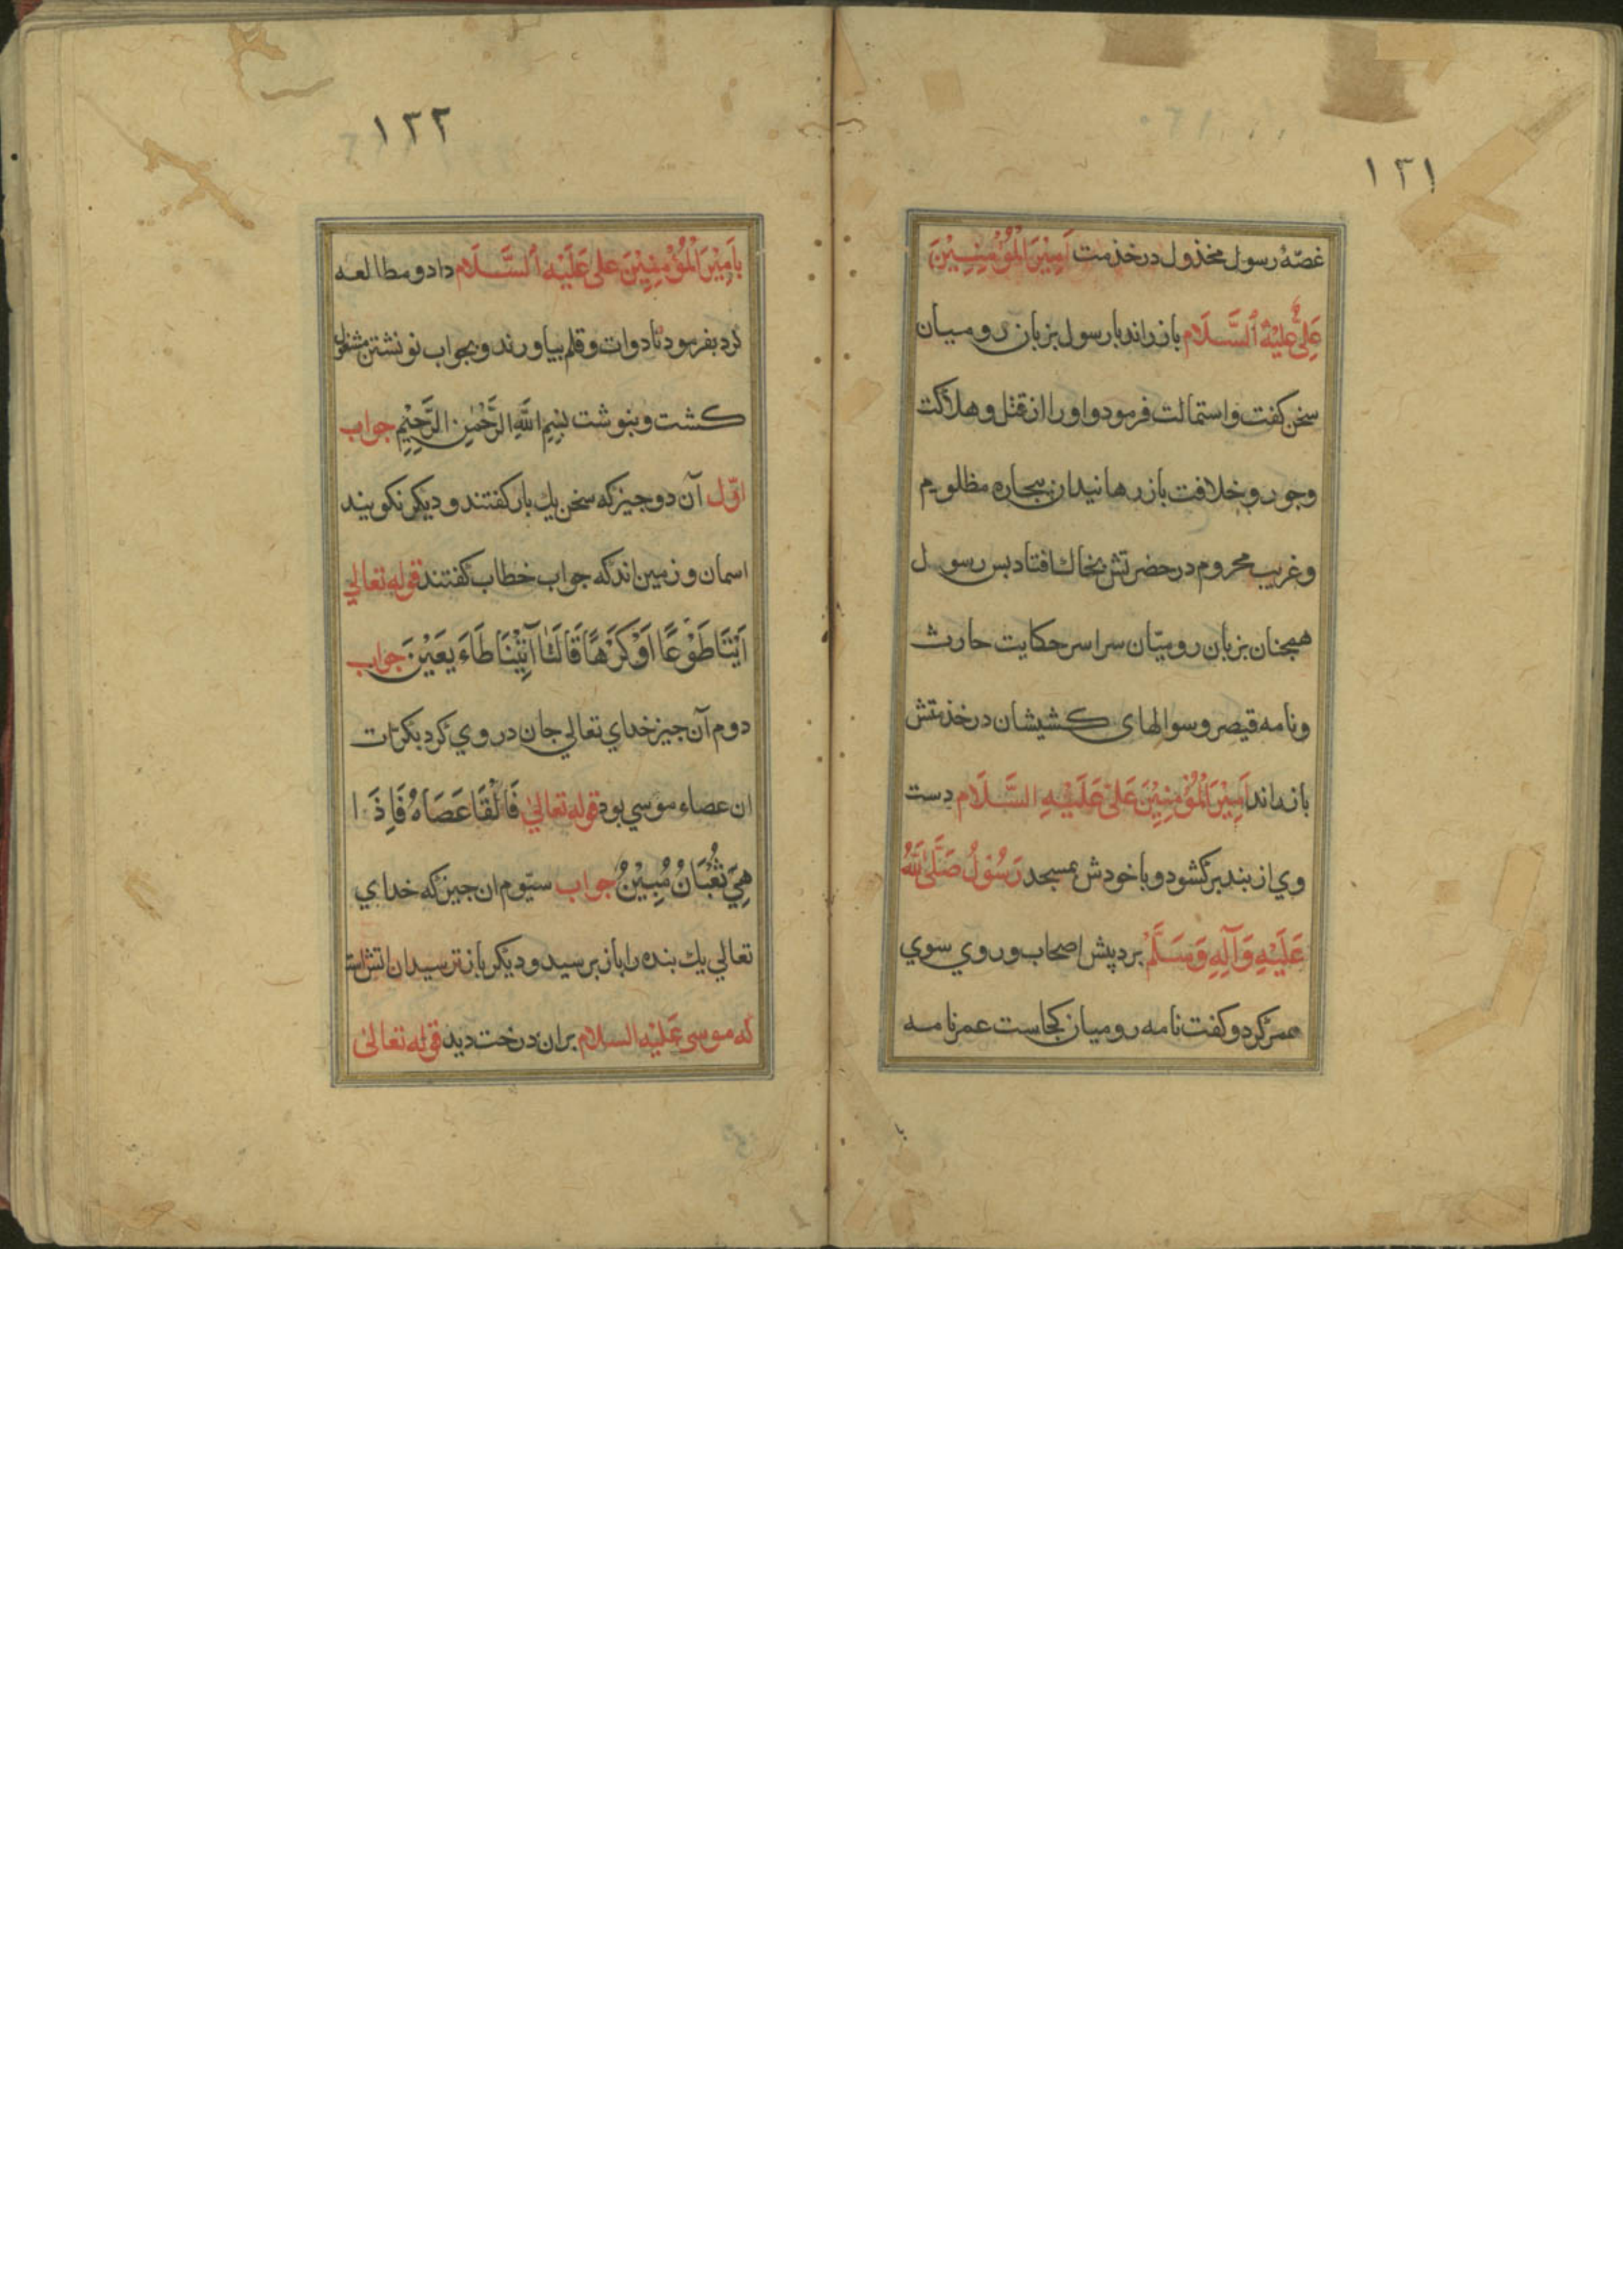 ١٢١
غصّهٔ رسول مخذول در خذمت اَمِيْرَالْمُؤْمِنِيْنَ
عَلِىّ عَلَيْهِ ٱلسَّلَام باز راند با رسول بزبان روميان
سخن كفت و استمالت فرمود و او را از قتل و هلاكت
وجور و خلافت باز رهانيد ان بيجاره مظلوم
وغريب محروم در حضرتش بخاك افتاد بس رسول
همجنان بزبان روميّان سراسر حكايت حارث
ونامه قيصر و سوالهاى كشيشان در خذمتش
باز راند اَمِيْرَالْمُؤْمِنِيْنَ عَلىْ عَلَيْهِ السَّلَام دست
وي از بند بركشود و با خودش بمسجد رَسُوْلُ صَلَّىٰ اللهُ
عَلَيْهِ وَآلِهِ وَسَلَّمْ برد پيش اصحاب و روي سوي
عمر كرد و كفت نامه روميان كجاست عمر نامه
١٢٢
بِاَمِيْرَالْمُؤْمِنِيْنَ على عَلَيْهِ ٱلسَّلَام داد و مطالعه
كرد بفرمود تا دوات و قلم بياورند و بجواب نونشتن مشغول
كشت و بنوشت بِسْمِ اللهِ الرَّحْمٰنِ الرَّحِيْمِ جواب
اوّل آن دو جيز كه سخن يك بار كفتند و ديكر نكويند
اسمان و زمين اند كه جواب خطاب كفتند قوله تعالي
اَيْتَنَا طَوْعًا اَوْ كَرْهًا قَالَتَا آتَيْنَا طَاءَيِعَيْنَ جواب
دوم آن جيز خداي تعالي جان در وي كرد بكرات
ان عصاء موسي بود قوله تعالىٰ فَالْقَا عَصَاهُ فَاِذَا
هِيَ ثُعْبَانُ مُبِيْنُ جواب سيّوم ان جيز كه خداي
تعالي يك بنده را باز برسيد و ديكر باز نترسيد ان اتش است
كه موسى عَلَيْهِ السلام بران درخت ديد قوله تعالىٰ